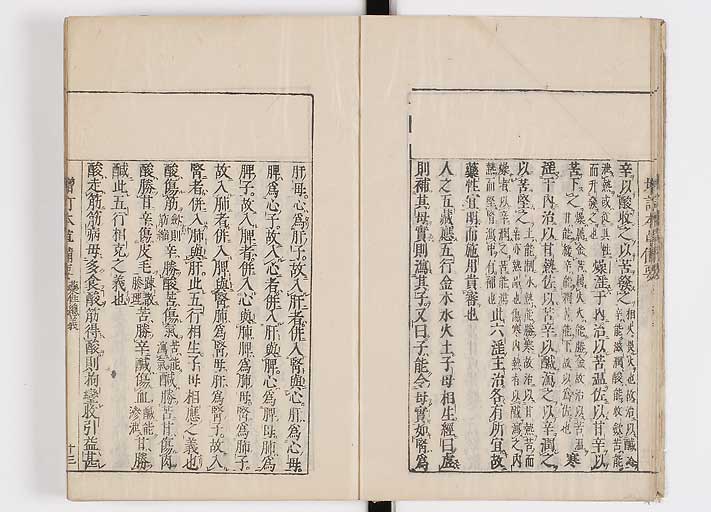 辛以酸收之以苦發之
而升發之也 燥淫于內治以苦溫佐以甘辛以
苦下之 寒
淫于內治以甘熱佐以苦辛以鹹瀉之以辛潤之
以苦堅之
此六淫主治各有所宜故
藥性宜明而施用貴審也
人之五臟應五行金木水火土子母相生經曰虛
則補其母實則瀉其子又曰子能令母實如腎為
肝母心為肝子故入肝者併入腎與心肝為心母
脾為心子故入心者併入肝與脾心為脾母肺為
脾子故入脾者併入心與肺脾為肺母腎為肺子
故入肺者併入脾與腎肺為腎母肝為腎子故入
腎者併入肺與肝此五行相生子母相應之義也
酸傷筋 辛勝酸苦傷氣 鹹勝苦甘傷肉
酸勝甘辛傷皮毛 疎散腠理 苦勝辛鹹傷血 鹹能滲泄 甘勝
鹹此五行相克之義也
酸走筋筋病毋多食酸筋得酸則拘攣收引益甚
增訂本草備要 藥性總義 十三